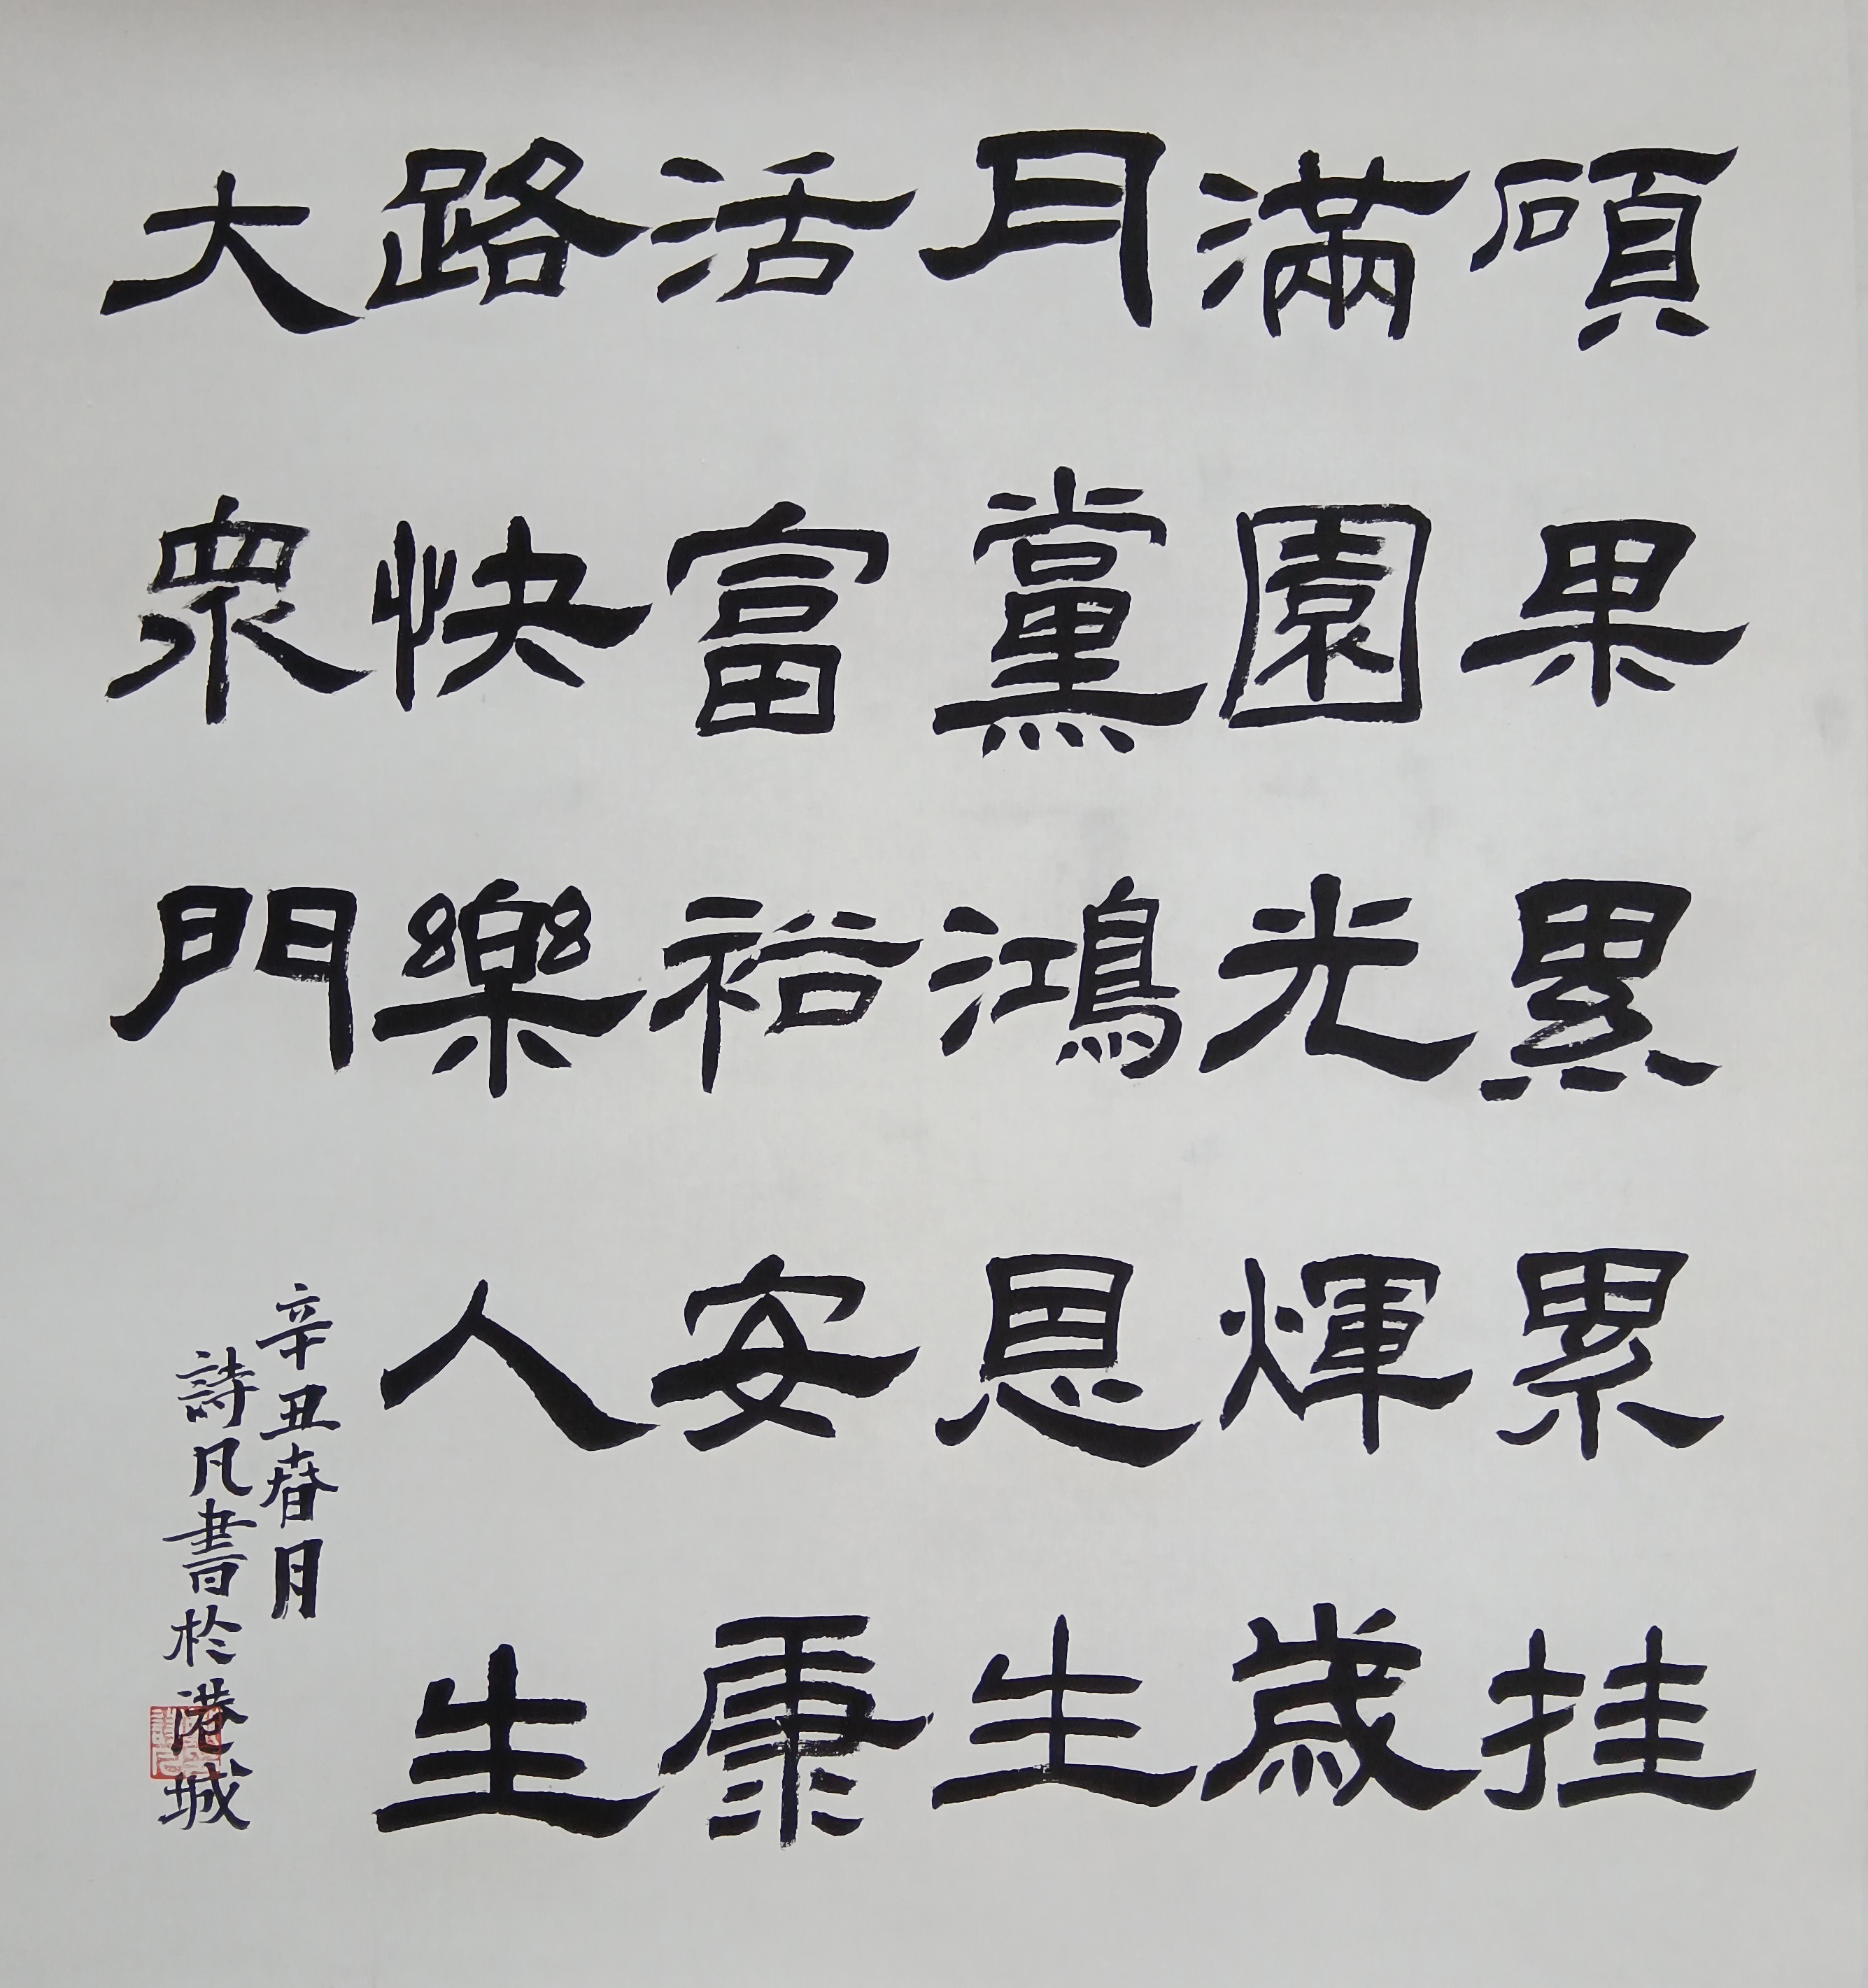 碩果累累挂
滿園光輝歲
月黨鴻恩生
活富裕安康
路快樂人生
大眾門
辛丑春月
詩凡書於港城